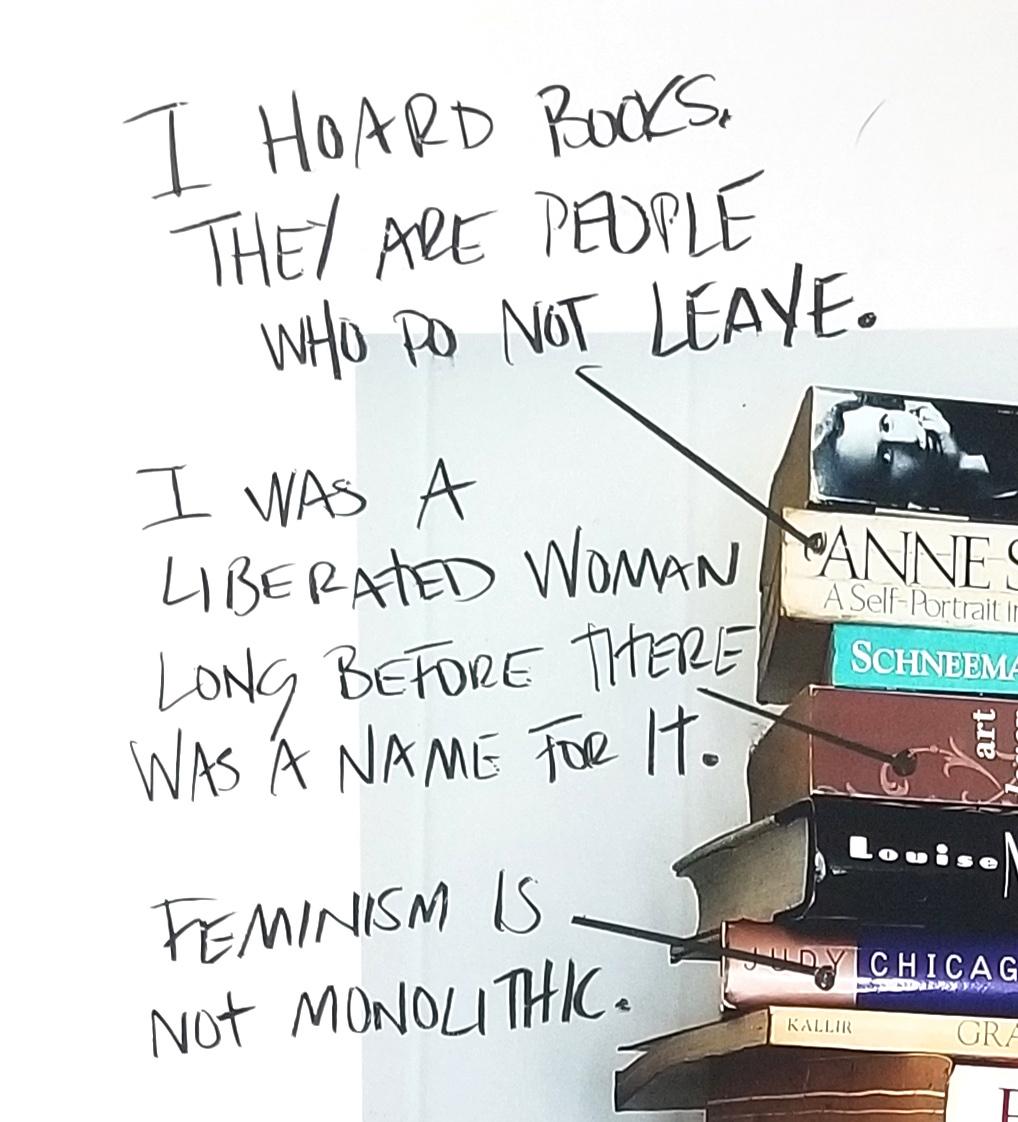 I HOARD BOOKS.
THEY ARE PEOPLE
WHO DO NOT LEAVE.
I WAS A
LIBERATED WOMAN
LONG BEFORE THERE
WAS A NAME FOR IT.
FEMINISM IS
NOT MONOLITHIC.
ANNE S
A Self-Portrait in
SCHNEEMA
art
Louise N
JUDY CHICAG
KALLIR GRA